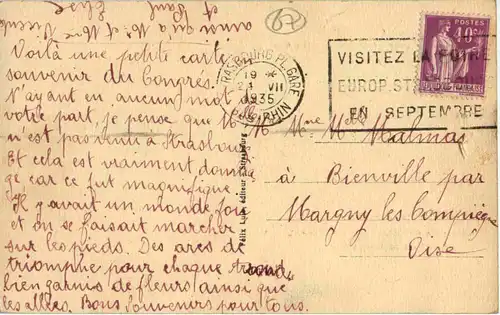 Voilà une petite carte en
souvenir du Congrès.
N'ayant eu aucun mot de
votre part, je pense que M. M
n'est pas venu à Strasbourg
Et cela est vraiment domma-
ge car ce fut magnifique.
Il y avait un monde fou
et on se faisait marcher
sur les pieds. Des arcs de
triomphe pour chaque
bien garnis de fleurs ainsi que
les allées. Bons Souvenirs pour tous.
67
STRASBOURG PL. GARE
19 *
VII
1935
BAS-RHIN
VISITEZ LA FOIRE
EUROP. ST
EN SEPTEMBRE
POSTES
40c
Félix Luib, éditeur, Strasbourg
Malmas
à Bienville par
Margny les Compiègne
Oise